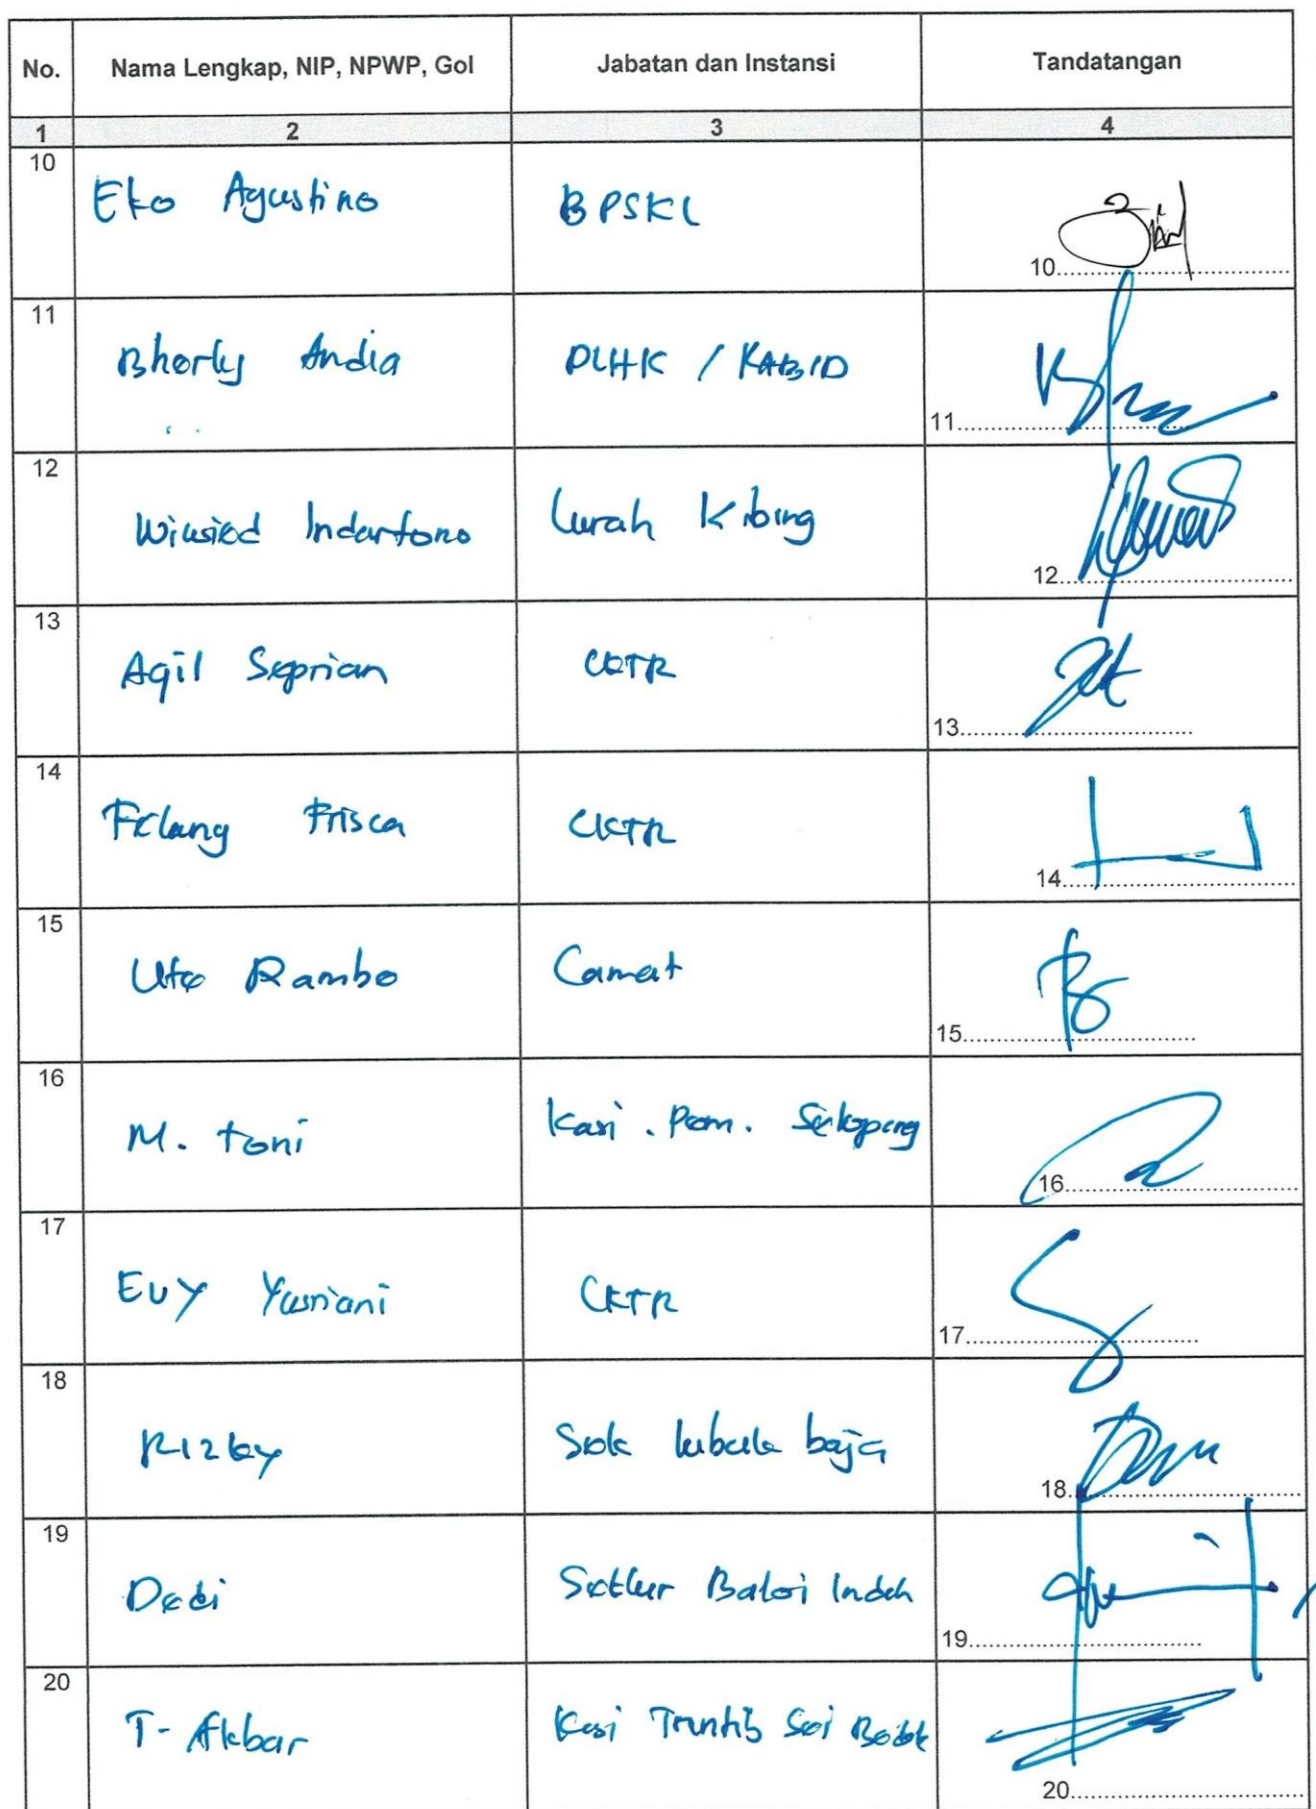 No. Nama Lengkap, NIP, NPWP, Gol Jabatan dan Instansi Tandatangan
1 2 3 4
10 Eko Agustino BPSKL 10
11 Bhorly Andia DLHK / KABID 11
12 Indartono Lurah Kibing 12
13 Aqil Seprian CKTR 13
14 Frisca CKTR 14
15 Rambo Camat 15
16 M. Toni Kasi . Pem. 16
17 Evy Yusriani CKTR 17
18 Rizky lubuk baja 18
19 Dedi Baloi Indah 19
20 T- Akbar Kasi Trantib Sei 20